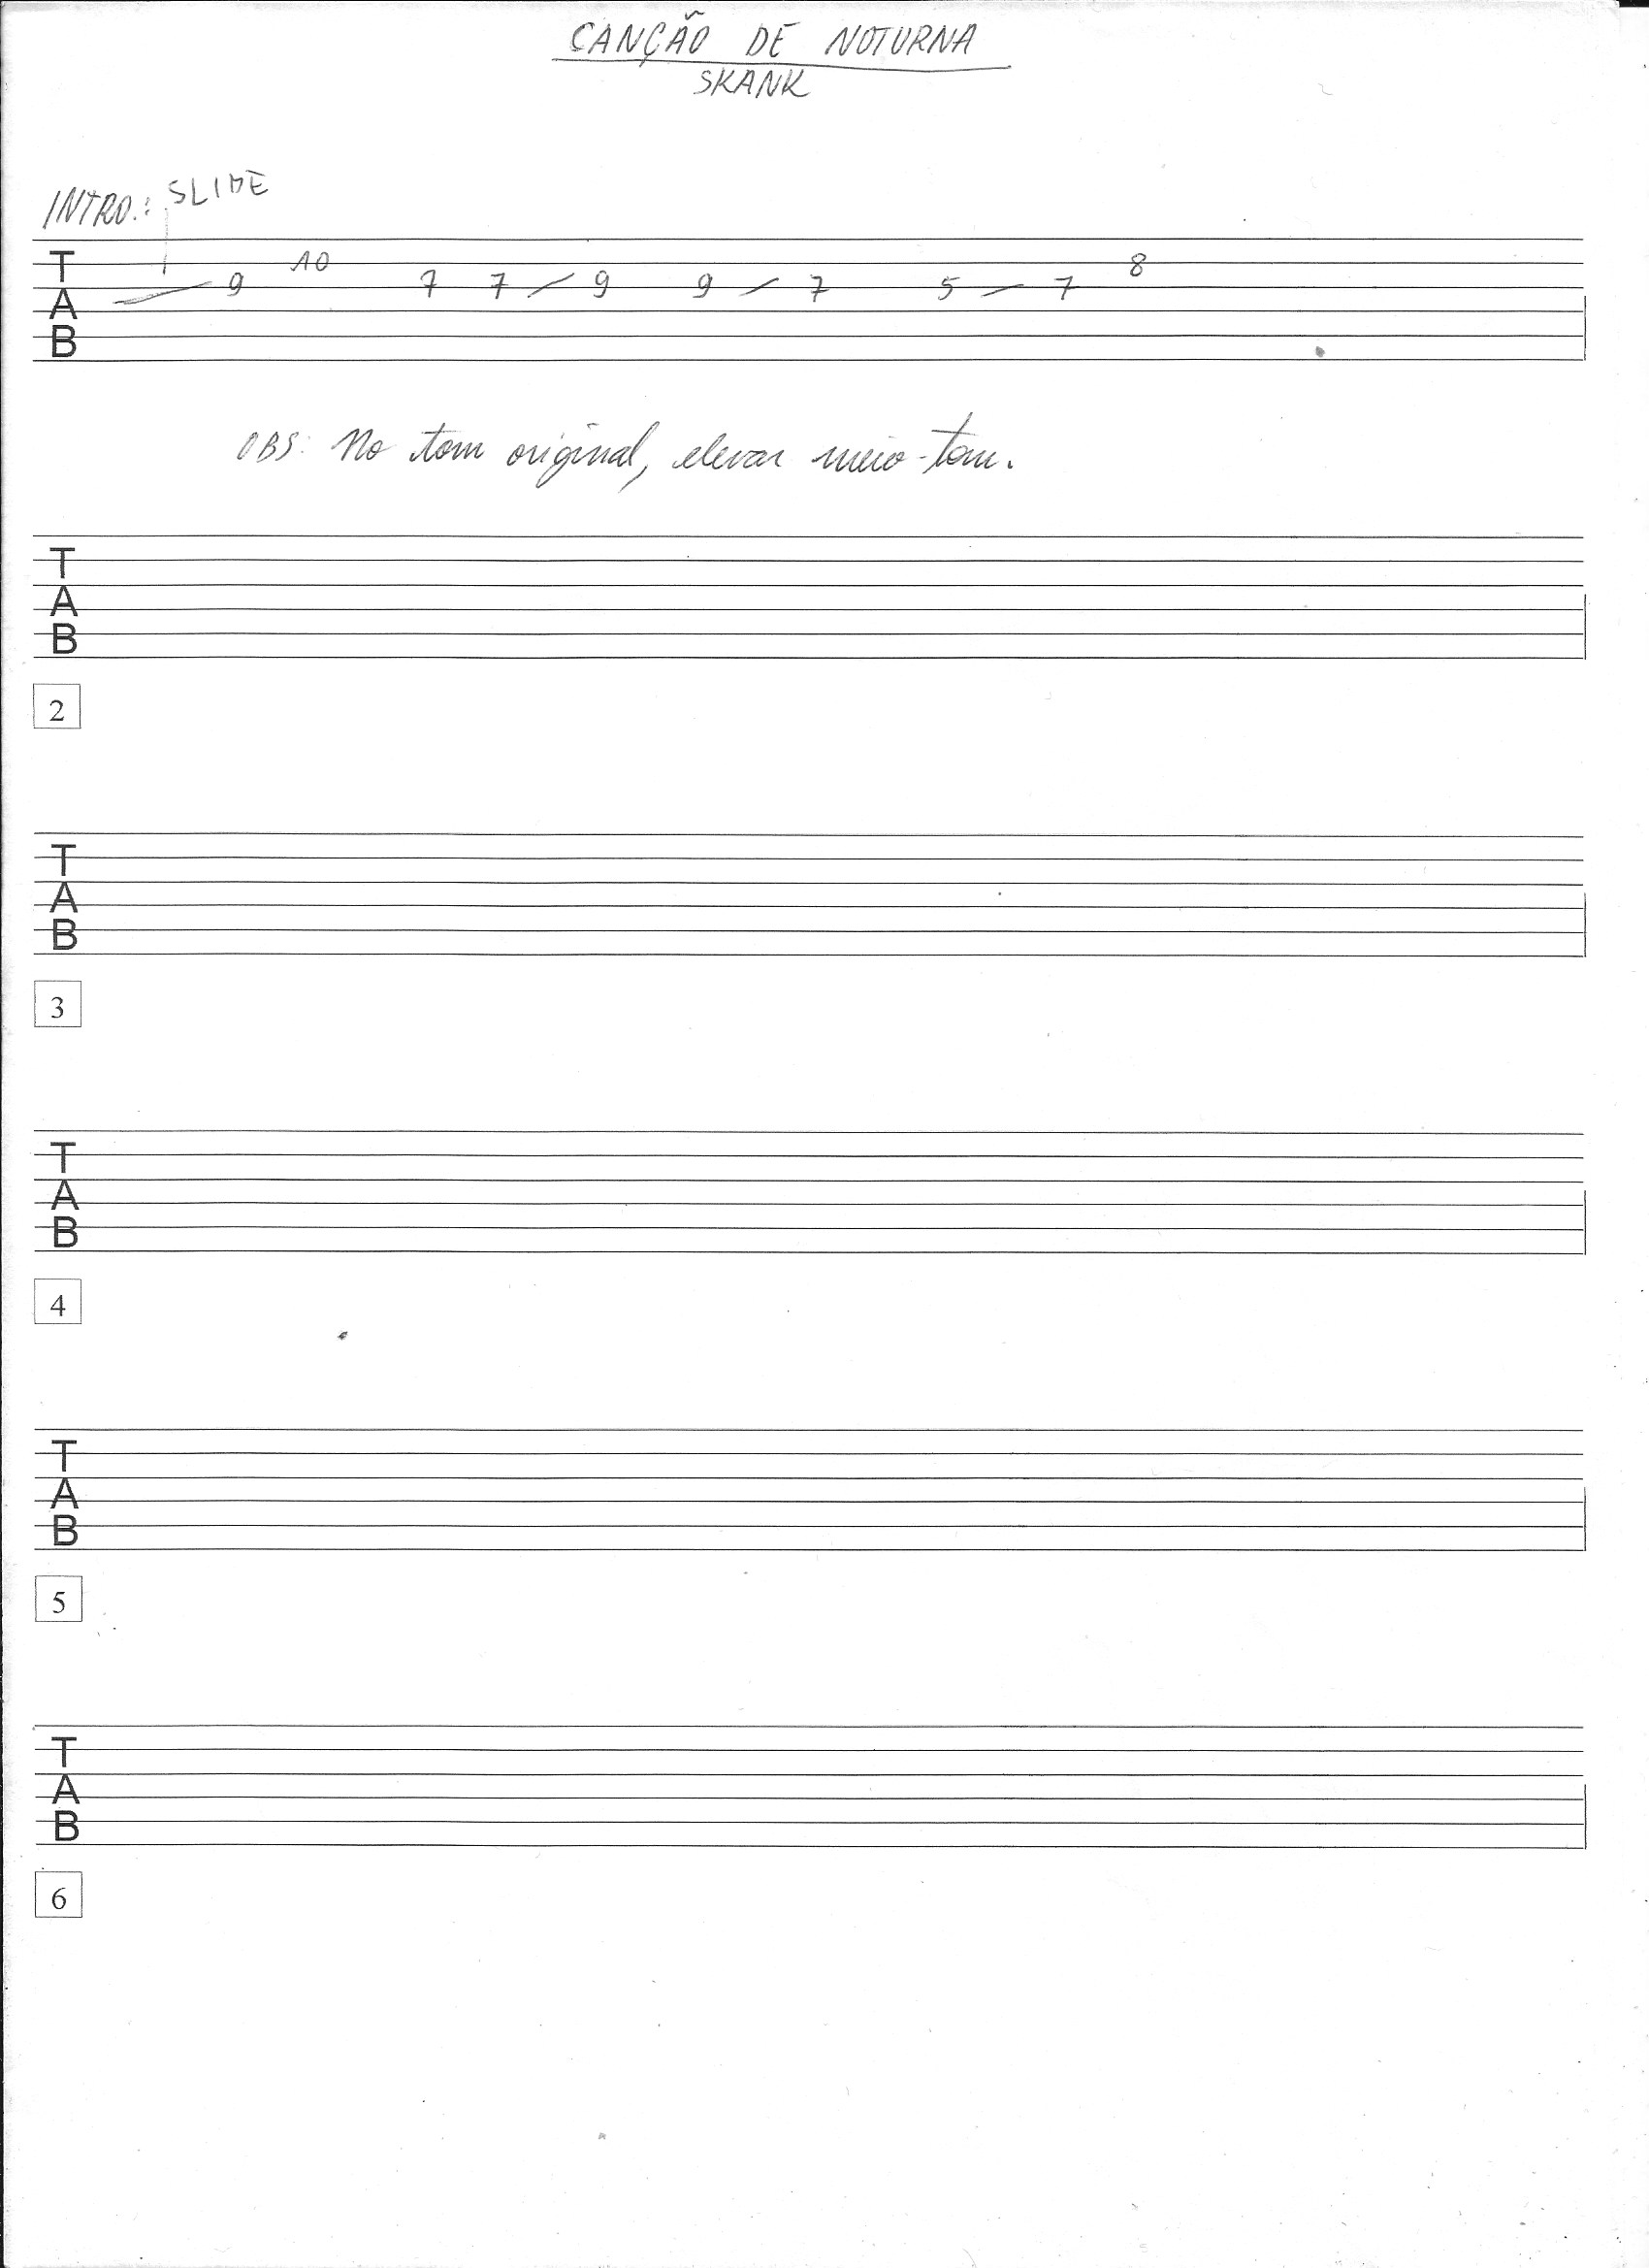 CANÇÃO DE NOTURNA
SKANK
INTRO.: SLIDE
T
A
B
9 10 7 7 9 9 7 5 7 8
OBS: No tom original, elevar meio-tom.
T
A
B
2
T
A
B
3
T
A
B
4
T
A
B
5
T
A
B
6